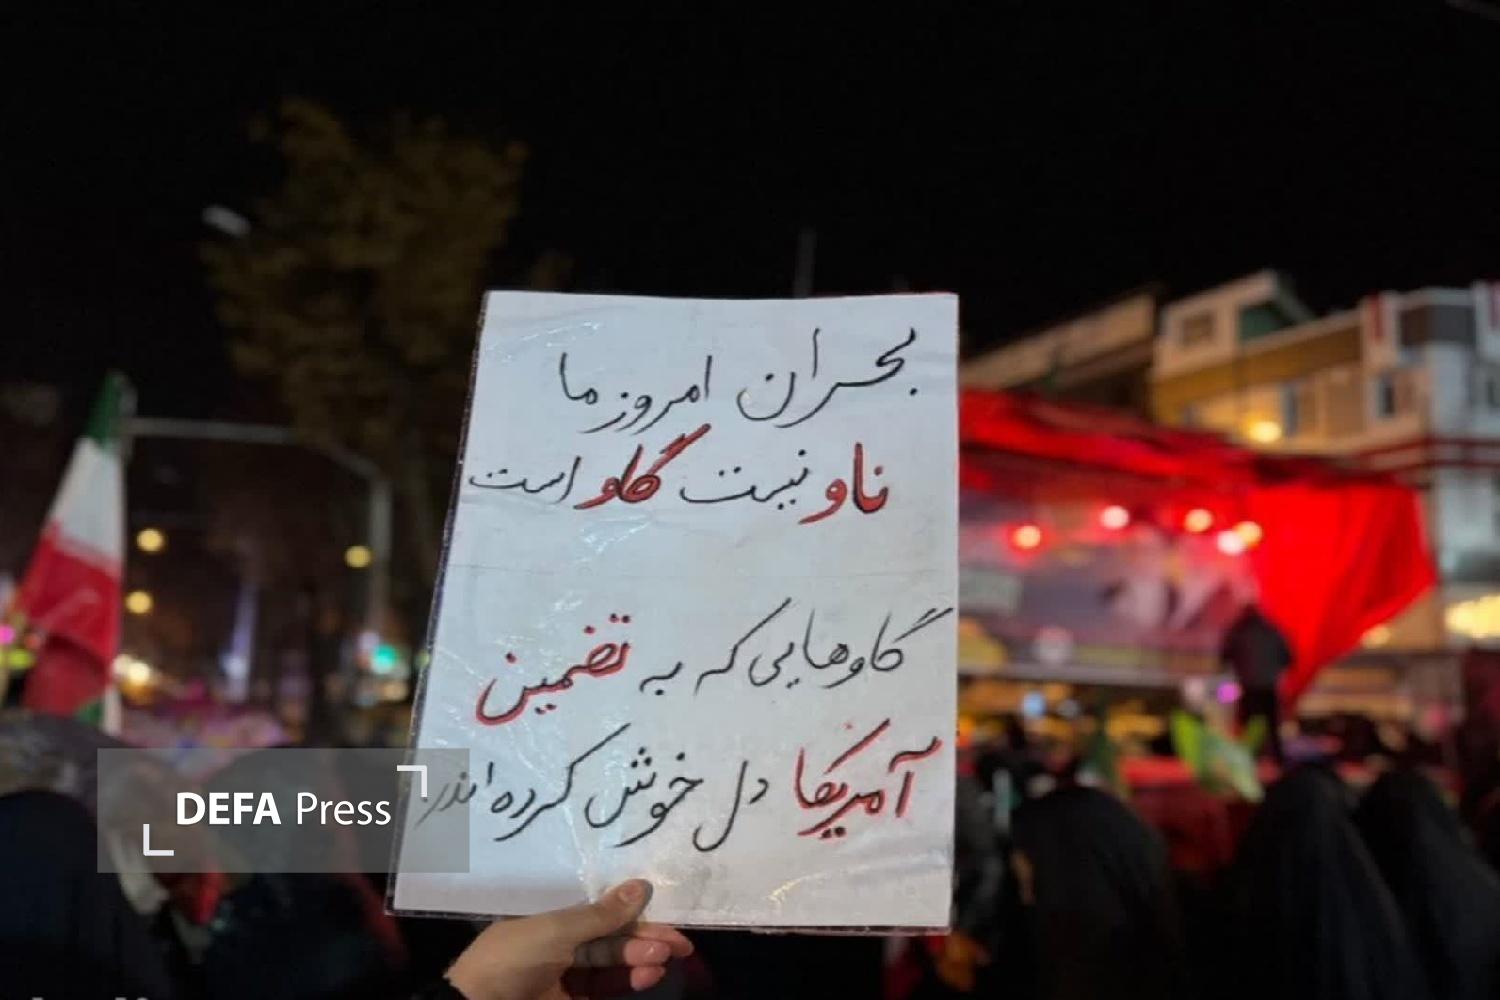 بحران امروز ما
ناو نیست گاو است
گاوهایی که به تضمین
آمریکا دل خوش کرده اند
DEFA Press